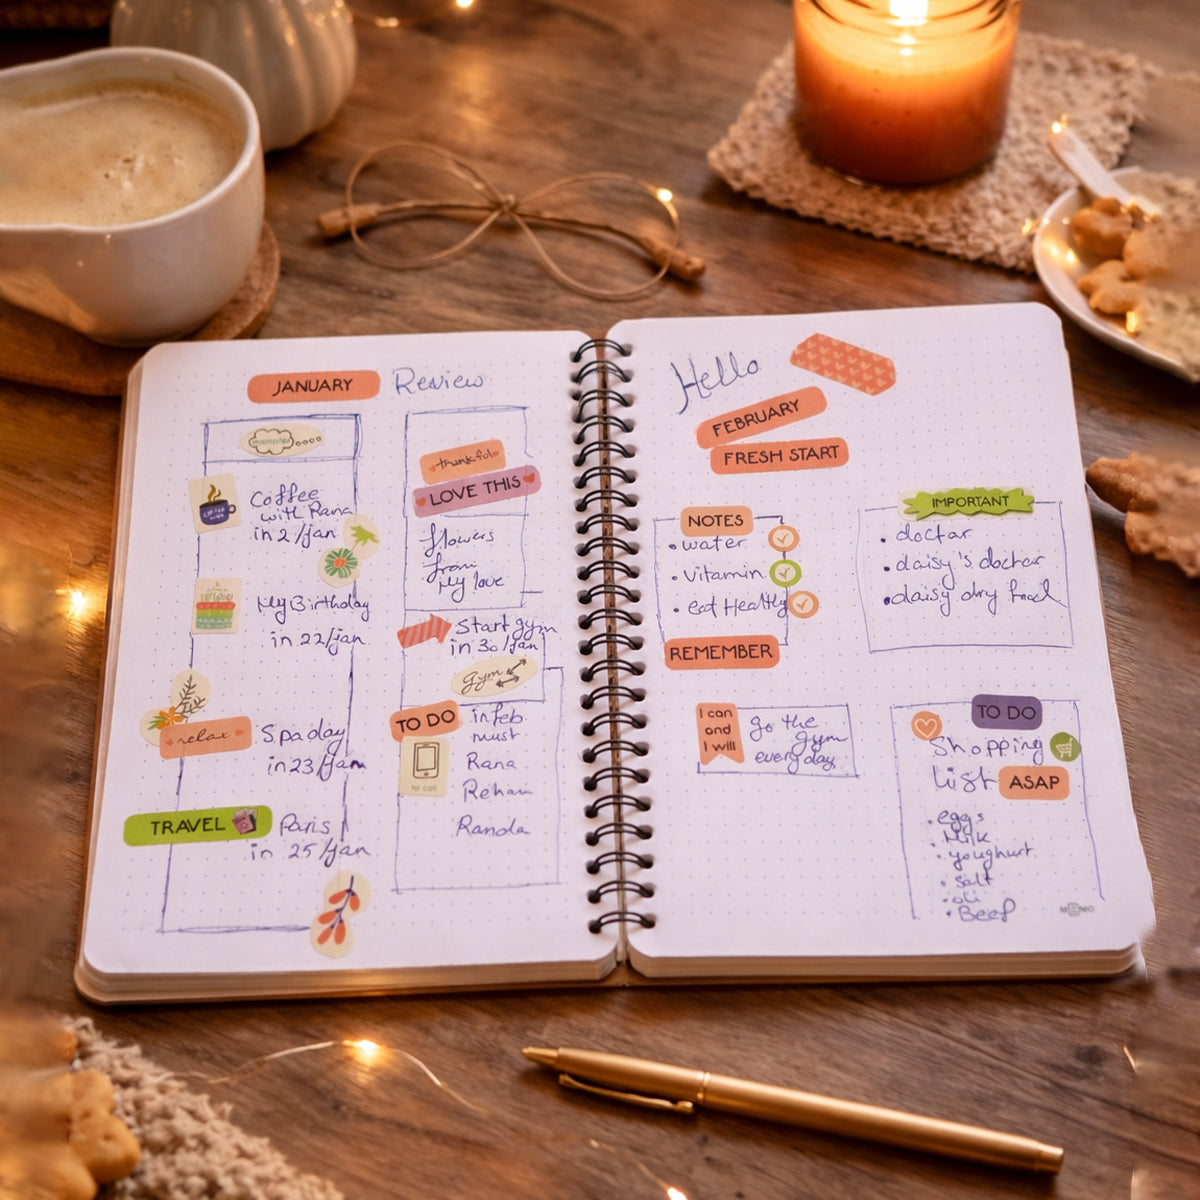 JANUARY Review
memories
Coffee
with Rana
in 2/jan
My Birthday
in 22/jan
relax
Spa day
in 23/jan
TRAVEL
Paris
in 25/jan
thankful
LOVE THIS
flowers
from
My love
Start gym
in 30/jan
Gym
TO DO
in feb
must
to call
Rana
Reham
Randa
Hello
FEBRUARY
FRESH START
NOTES
• water
• vitamin
• eat Healthy
REMEMBER
IMPORTANT
• doctor
• daisy's doctor
• daisy dry food
I can
and
I will
go the
gym
everyday
TO DO
Shopping
List ASAP
• eggs
• Milk
• youghurt
• salt
• oil
• Beef